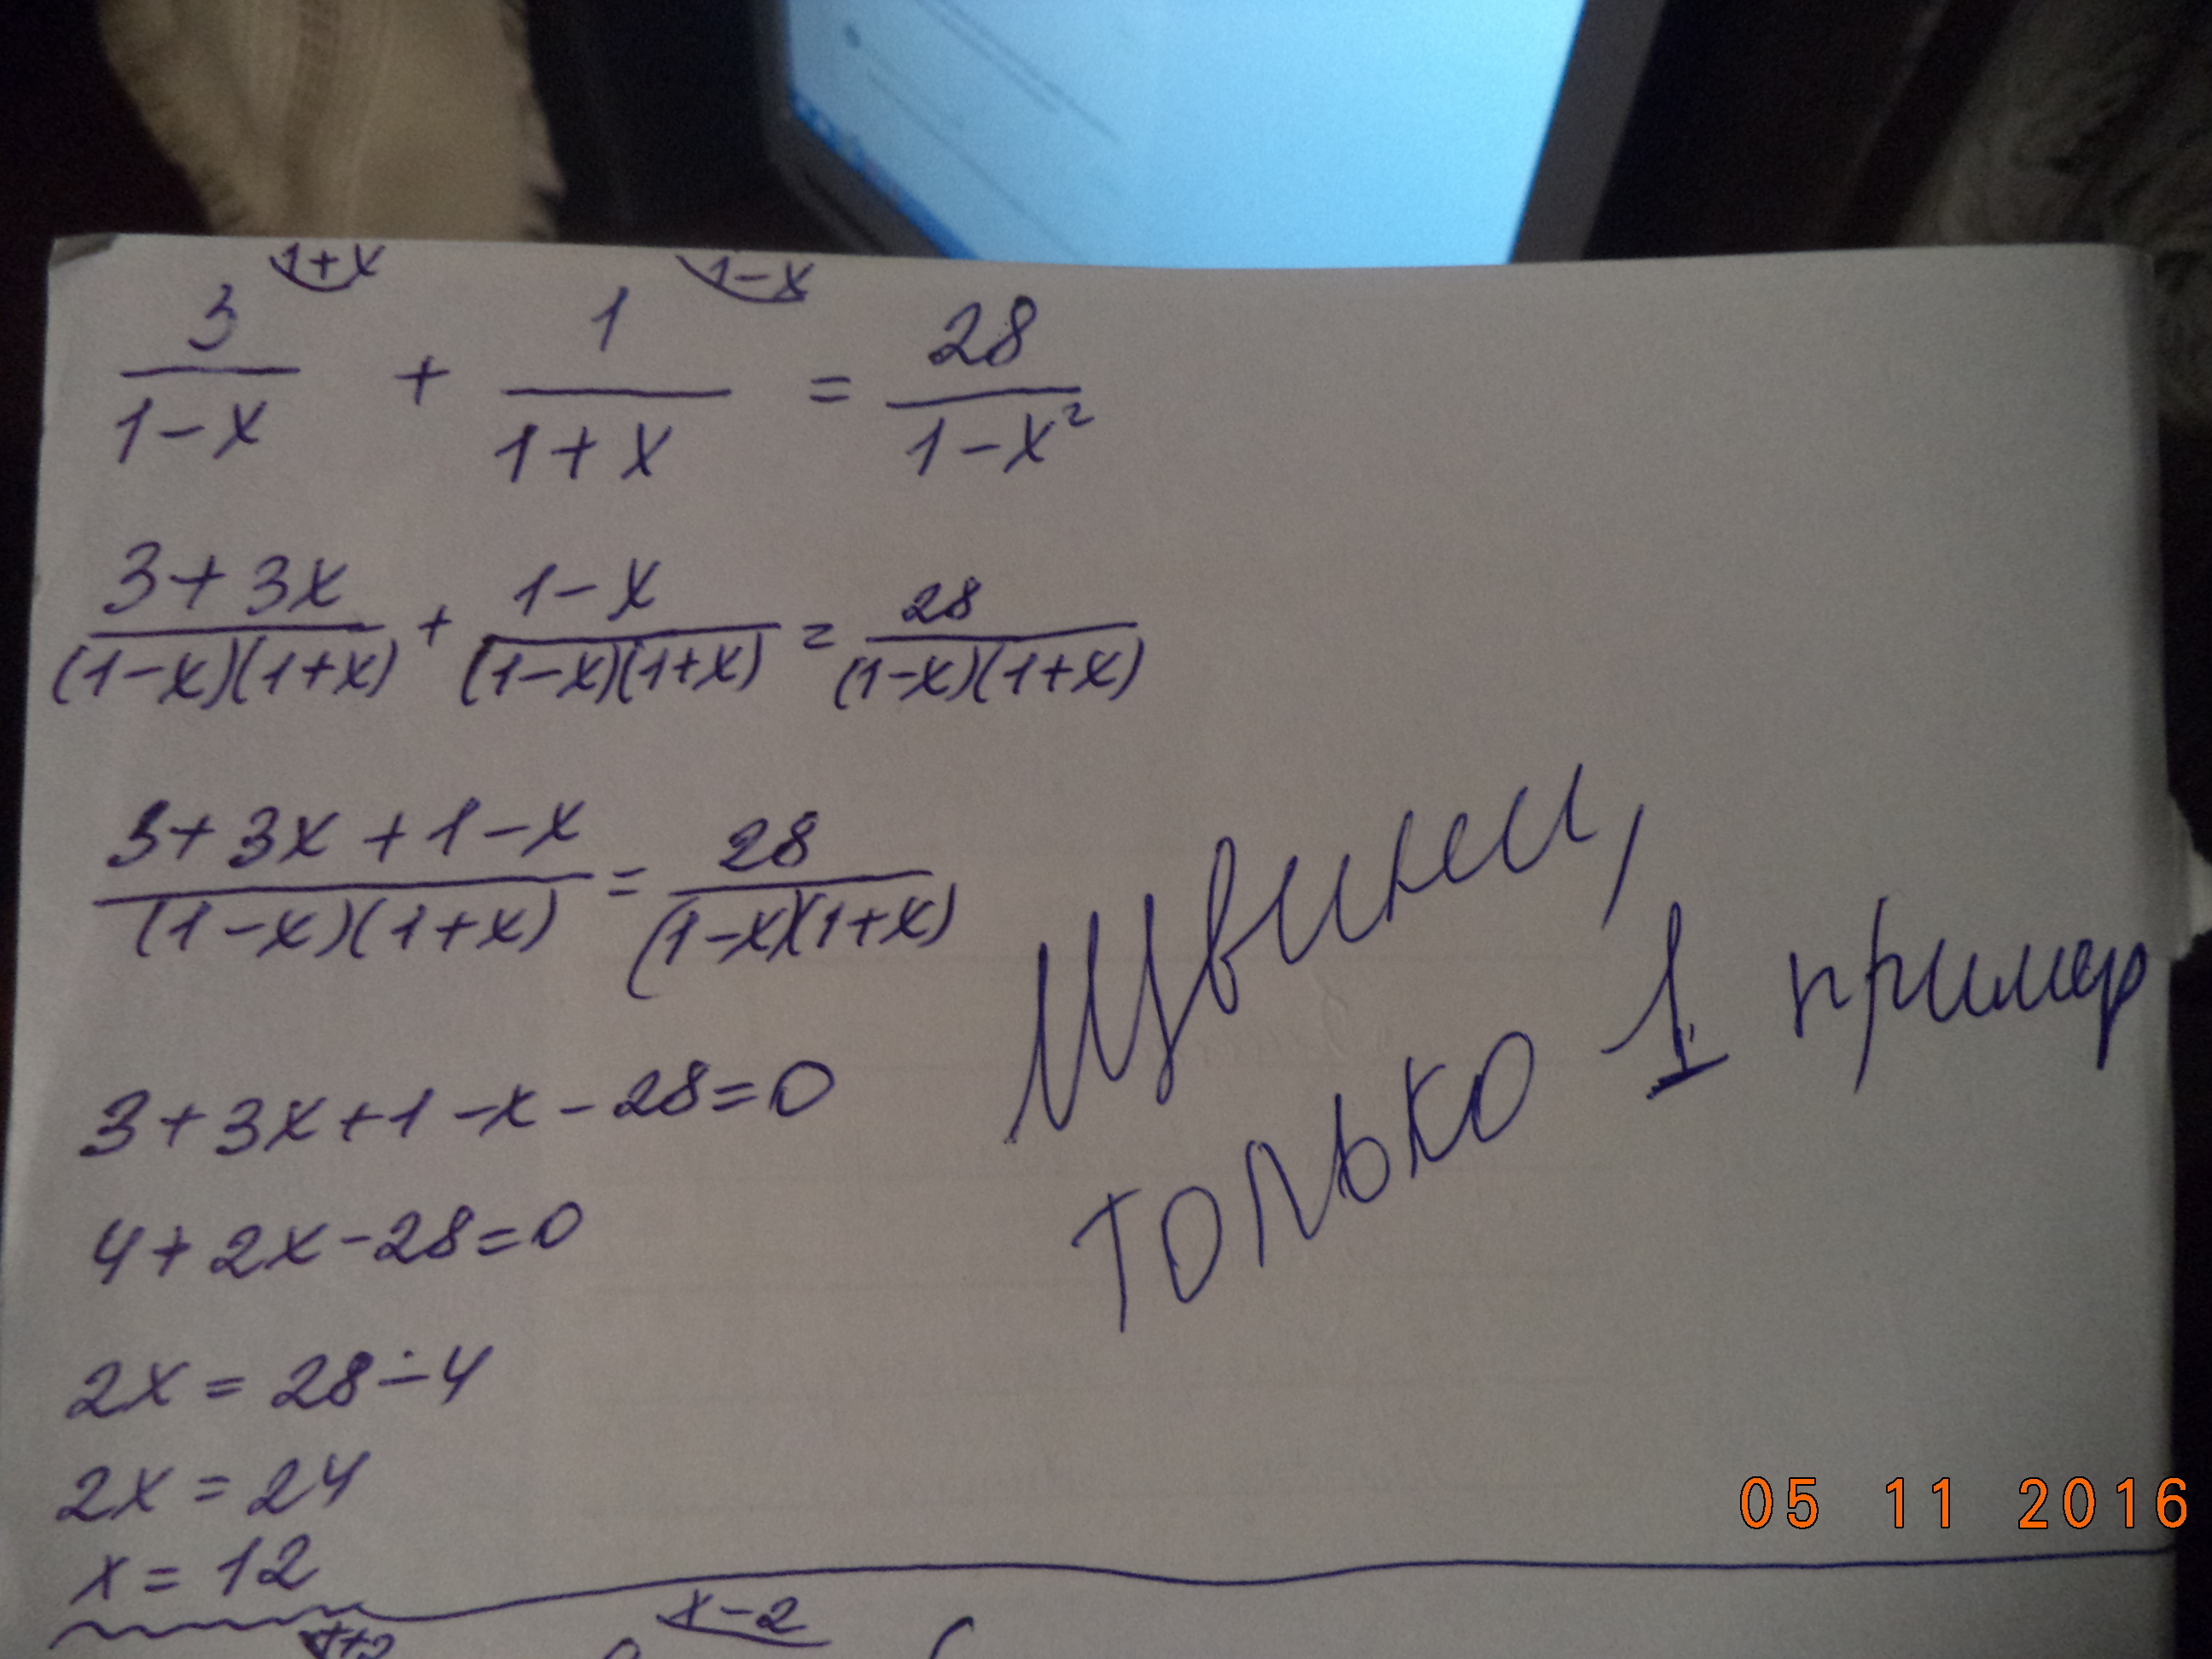 1+x 1-x
3/(1-x) + 1/(1+x) = 28/(1-x²)
(3+3x)/((1-x)(1+x)) + (1-x)/((1-x)(1+x)) = 28/((1-x)(1+x))
(3+3x+1-x)/((1-x)(1+x)) = 28/((1-x)(1+x))
3+3x+1-x-28=0
4+2x-28=0
2x=28-4
2x=24
x=12
только 1 пример
05 11 2016
x-2